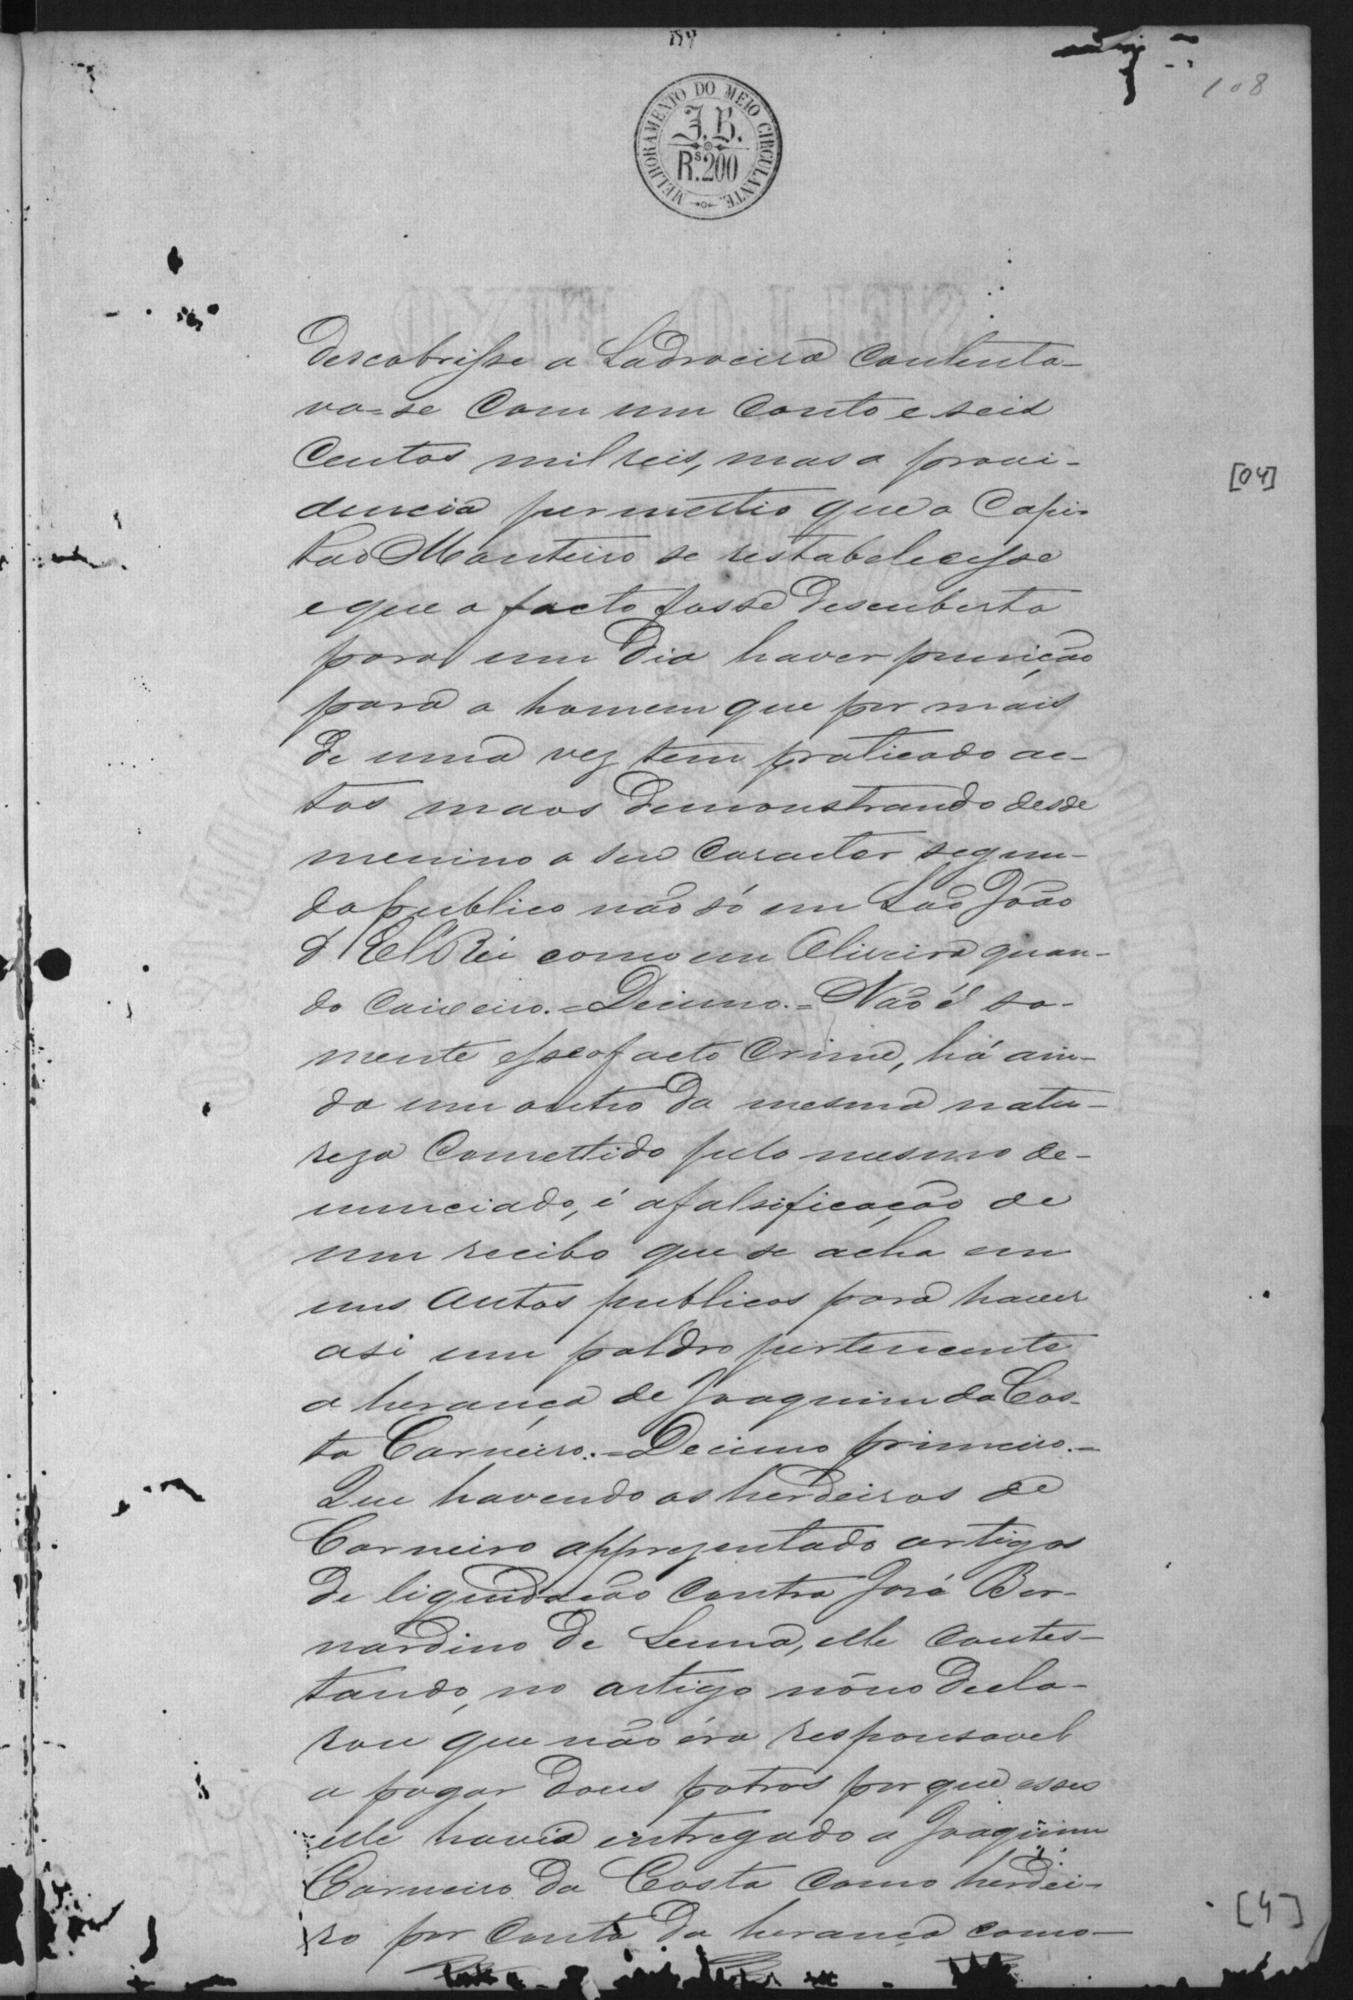 108
MELHORAMENTO DO MEIO CIRCULANTE.
J.B.
Rs.200
descobrisse a Ladroeira contenta-
va-se com um conto e seis
centos mil reis, mas a provi-
dencia permettio que o Capi-
tão Monteiro se restabelecesse
e que o facto fosse descuberto
para um dia haver punição
para o homem que por mais
de uma vez tem praticado ac-
tos maos demonstrando desde
menino o seu caracter segun-
do publico não só em São João
d'El Rei como em Oliveira quan-
do caixeiro.=Decimo.=Não é so-
mente esse o facto crime, há ain-
da um outro da mesma natu-
reza comettido pelo mesmo de-
nunciado, é a falsificação de
um recibo que se acha em
uns autos publicos para haver
a si um poldro pertencente
a herança de Joaquim da Cos-
ta Carneiro.=Decimo primeiro.=
Que havendo os herdeiros de
Carneiro apprezentado artigos
de liquidação contra José Ber-
nardino de Senna, elle contes-
tando, no artigo nôno decla-
rou que não éra responsavel
a pagar dous potros por que esses
elle havia entregado a Joaquim
Carneiro da Costa como herdei-
ro por conta da herança como-
[04]
[4]